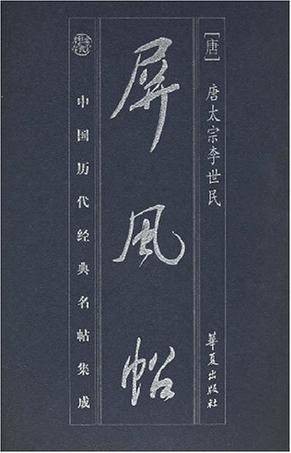 [唐]
唐太宗李世民
华夏出版社
屏风帖
中国历代经典名帖集成